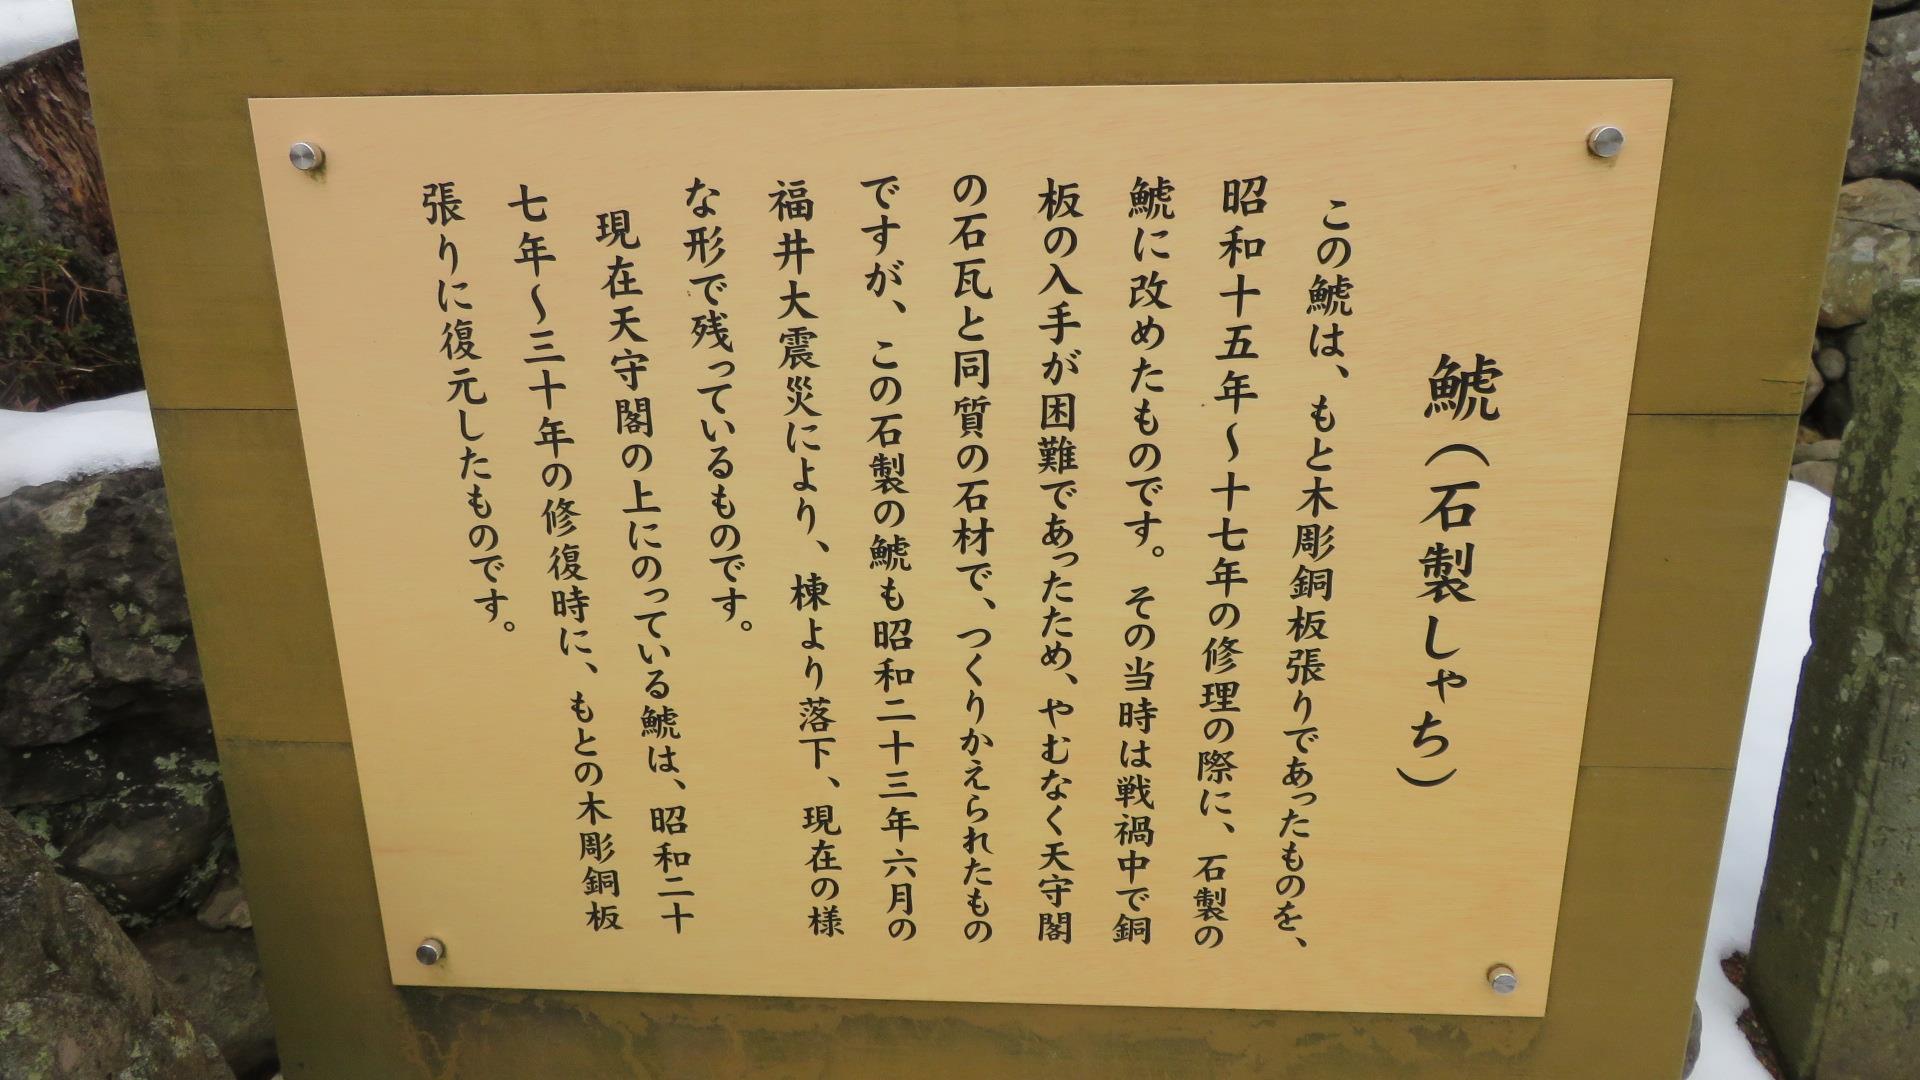 鯱（石製しゃち）
この鯱は、もと木彫銅板張りであったものを、
昭和十五年～十七年の修理の際に、石製の
鯱に改めたものです。その当時は戦禍中で銅
板の入手が困難であったため、やむなく天守閣
の石瓦と同質の石材で、つくりかえられたもの
ですが、この石製の鯱も昭和二十三年六月の
福井大震災により、棟より落下、現在の様
な形で残っているものです。
現在天守閣の上にのっている鯱は、昭和二十
七年～三十年の修復時に、もとの木彫銅板
張りに復元したものです。